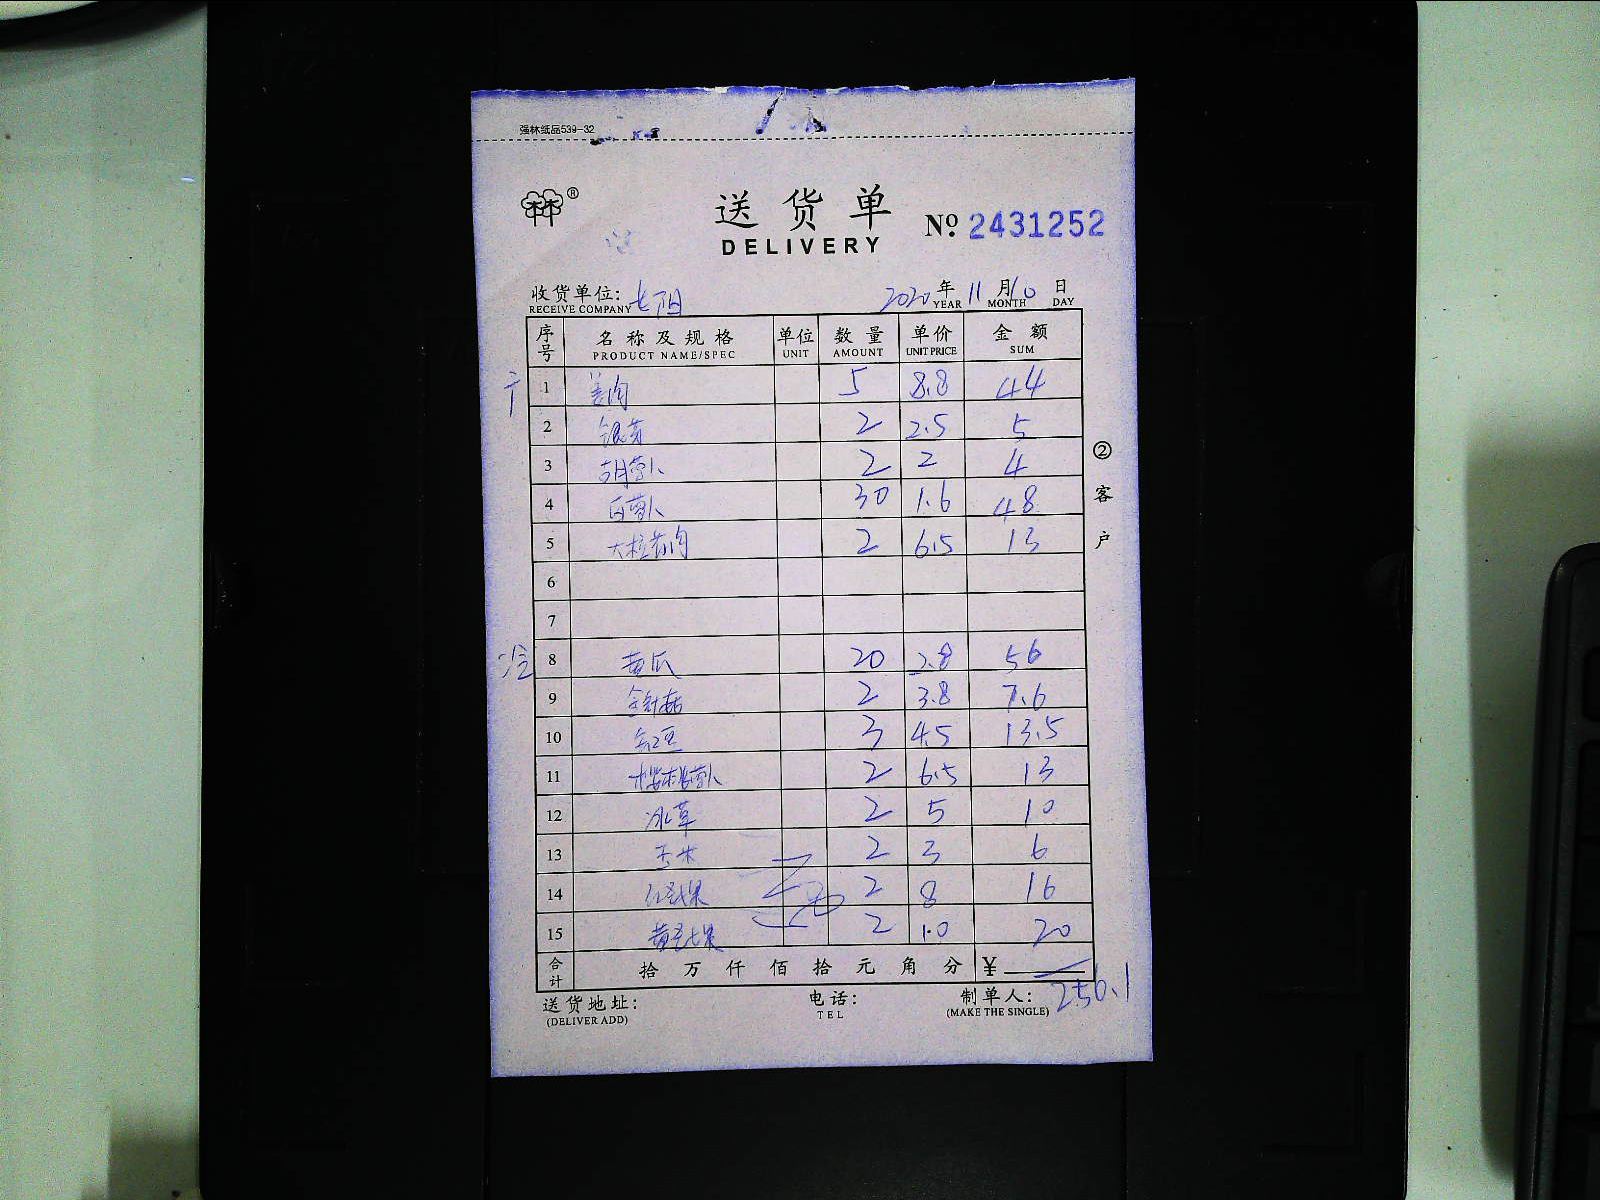 强林纸品539-32
林®
送货单
DELIVERY
Nº 2431252
收货单位: 七阳
RECEIVE COMPANY
2020年11月10日
YEAR MONTH DAY
序号 名称及规格 单位 数量 单价 金额
PRODUCT NAME/SPEC UNIT AMOUNT UNIT PRICE SUM
1 姜肉 5 8.8 44
2 银芽 2 2.5 5
3 胡萝卜 2 2 4
4 白萝卜 30 1.6 48
5 2 6.5 13
6
7
冷 8 黄瓜 20 2.8 56
9 金针菇 2 3.8 7.6
10 红豆 3 4.5 13.5
11 樱桃萝卜 2 6.5 13
12 冰草 2 5 10
13 玉米 2 3 6
14 2 8 16
15 2 10 20
合计 拾万仟佰拾元角分 ¥
256.1
送货地址: 电话: 制单人:
(DELIVER ADD) TEL (MAKE THE SINGLE)
②客户